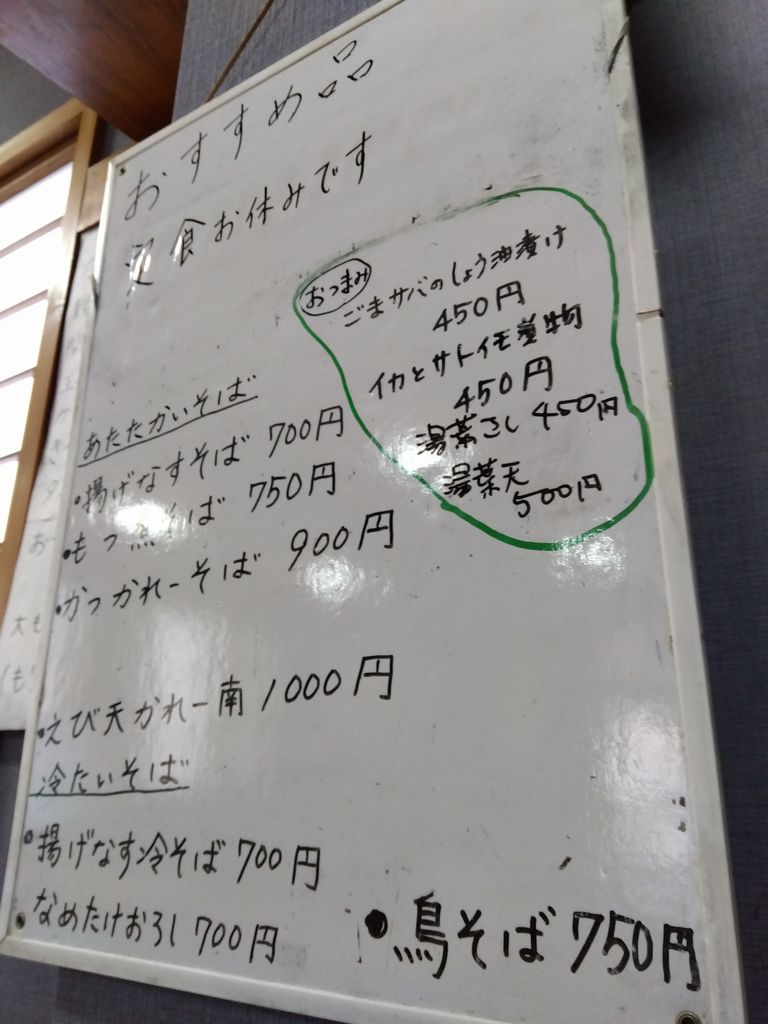 おすすめ品
定食お休みです
おつまみ
ごまサバのしょう油漬け
450円
イカとサトイモ煮物
450円
湯葉さし 450円
湯葉天
500円
あたたかいそば
・揚げなすそば 700円
・もつ煮そば 750円
・かつかれーそば 900円
・えび天かれー南 1000円
冷たいそば
・揚げなす冷そば 700円
なめたけおろし 700円
・鳥そば 750円